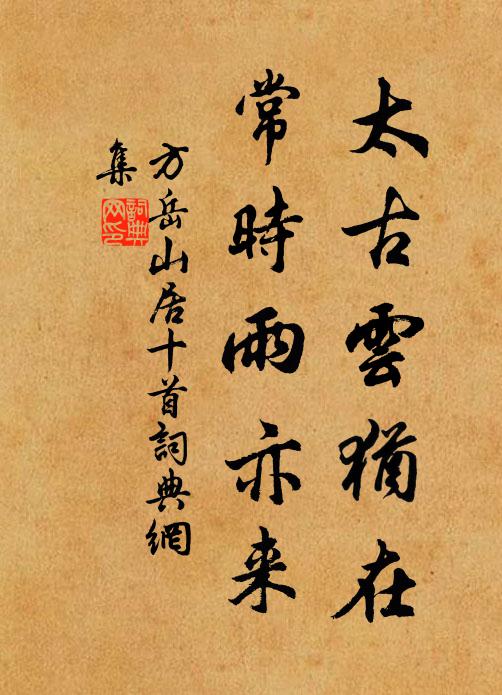 太古雲猶在
常時雨亦来
方岳山居十首詞典網
集
詞典
网印